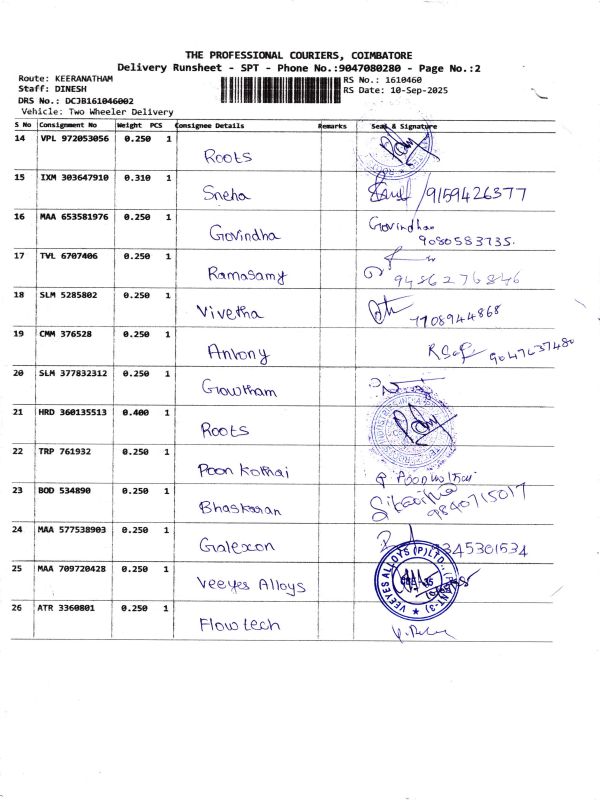 THE PROFESSIONAL COURIERS, COIMBATORE
Delivery Runsheet - SPT - Phone No.:9047080280 - Page No.:2
Route: KEERANATHAM RS No.: 1610460
Staff: DINESH RS Date: 10-Sep-2025
DRS No.: DCJB161046002
Vehicle: Two Wheeler Delivery
S No Consignment No Weight PCS Consignee Details Remarks Seal & Signature
14 VPL 972053056 0.250 1 Roots
15 IXM 303647910 0.310 1 Sneha 9159426377
16 MAA 653581976 0.250 1 Govindha Govindhan
9080583735.
17 TVL 6707406 0.250 1 Ramasamy 9486276846
18 SLM 5285802 0.250 1 Vivetha 7708944868
19 CMM 376528 0.250 1 Antony 9047637480
20 SLM 377832312 0.250 1 Gowtham
21 HRD 360135513 0.400 1 Roots
22 TRP 761932 0.250 1 Poon kothai
23 BOD 534890 0.250 1 Bhaskaran 9840715017
24 MAA 577538903 0.250 1 Galexon 345301534
25 MAA 709720428 0.250 1 Veeyes Alloys VEEYES ALLOYS (P) LTD.,
26 ATR 3360801 0.250 1 Flowtech